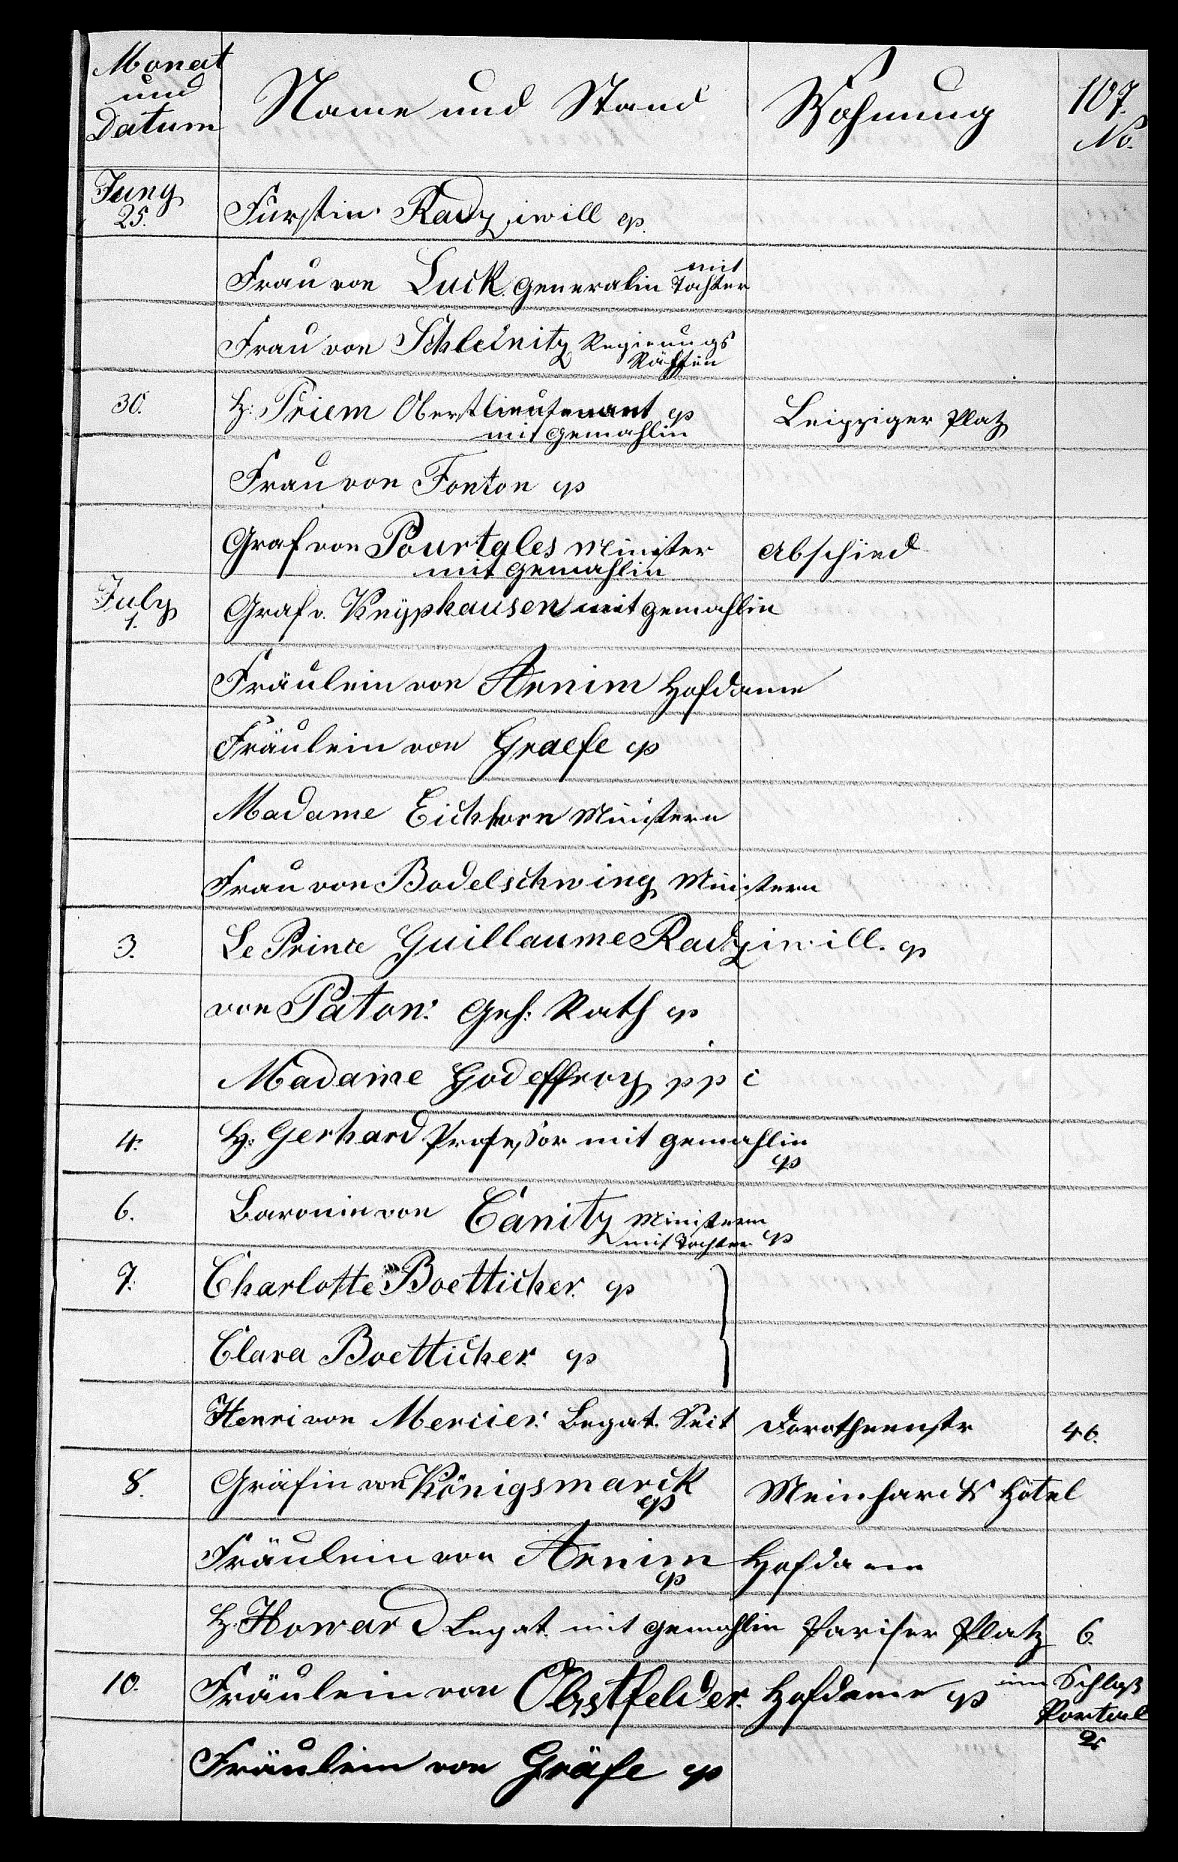 Monat und Datum Name und Stand Wohnung 107. No.
Juny 25. Fürstin Radziwill ep.
Frau von Luck. Generalin mit Tochter
Frau von Schleinitz Regierungs Räthin
30. H: Priem Oberstlieutenant ep mit Gemahlin Leipziger Platz
Frau von Fonton ep
Graf von Pourtales Minister mit Gemahlin Abschied
July 1. Graf v. Knÿphausen mit Gemahlin
Fräulein von Arnim Hofdame
Fräulein von Graefe ep
Madame Eichhorn Ministern
Frau von Bodelschwing Ministern
3. Le Prince Guillaume Radziwill. ep
von Paton: Geh: Rath ep
Madame Godeffroy pp c
4. H: Gerhard Professor mit Gemahlin ep
6. Baronin von Canitz Ministern mit Tochter ep
7. Charlotte Boetticher ep
Clara Boetticher ep
Henri von Mercier: Legat. Secr Dorotheenstr 46.
8. Gräfin von Königsmarck ep Meinhardts Hôtel
Fräulein von Arnim ep Hofdame
H. Howard Legat. mit Gemahlin Pariser Platz 6.
10. Fräulein von Obstfelder. Hofdame ep im Schloß Portal 2
Fräulein von Gräfe ep